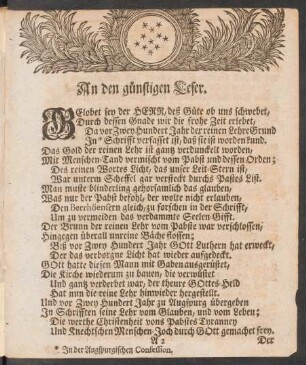 An den günstigen Leser.
GElobet sey der HERR, deß Güte ob uns schwebet,
Durch dessen Gnade wir die frohe Zeit erlebet,
Da vor Zwey Hundert Jahr der reinen Lehre Grund
In * Schrifft verfasset ist, daß sie ist worden kund.
Das Gold der reinen Lehr ist gantz verdunckelt worden,
Mit Menschen-Tand vermischt vom Pabst und dessen Orden;
Des reinen Wortes Licht, das unser Leit-Stern ist,
War unterm Scheffel gar versteckt durch Pabstes List.
Man muste blinderling gehorsamlich das glauben,
Was nur der Pabst befohl, der wolte nicht erlauben,
Den Berrhöensern gleich zu forschen in der Schrifft,
Um zu vermeiden das verdammte Seelen-Gifft.
Der Brunn der reinen Lehr vom Pabste war verschlossen,
Hingegen überall unreine Bäche flossen;
Biß vor Zwey Hundert Jahr GOtt Luthern hat erweckt,
Der das verborgne Licht hat wieder aufgedeckt.
GOtt hatte diesen Mann mit Gaben ausgerüstet,
Die Kirche wiederum zu bauen, die verwüstet
Und gantz verderbet war; der theure GOttes-Held
Hat nun die reine Lehr hinwieder hergestellt.
Und vor Zwey Hundert Jahr zu Augspurg übergeben
In Schrifften seine Lehr vom Glauben, und vom Leben;
Die werthe Christenheit vons Pabstes Tyranney
Und Knechtschen Menschen-Joch durch GOtt gemachet frey.
A 2 Der
* In der Augspurgischen Confession.